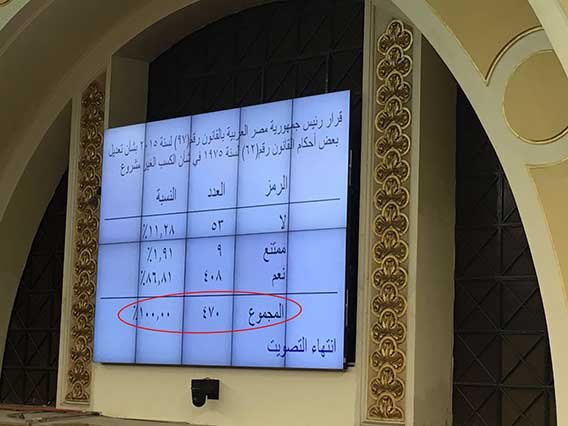 قرار رئيس جمهورية مصر العربية بالقانون رقم(٩٧) لسنة ٢٠١٥ بشأن تعديل
بعض أحكام القانون رقم(٦٢) لسنة ١٩٧٥ في شأن الكسب الغير مشروع
الرمز العدد النسبة
لا ٥٣ ١١,٢٨٪
ممتنع ٩ ١,٩١٪
نعم ٤٠٨ ٨٦,٨١٪
المجموع ٤٧٠ ١٠٠,٠٠٪
انتهاء التصويت